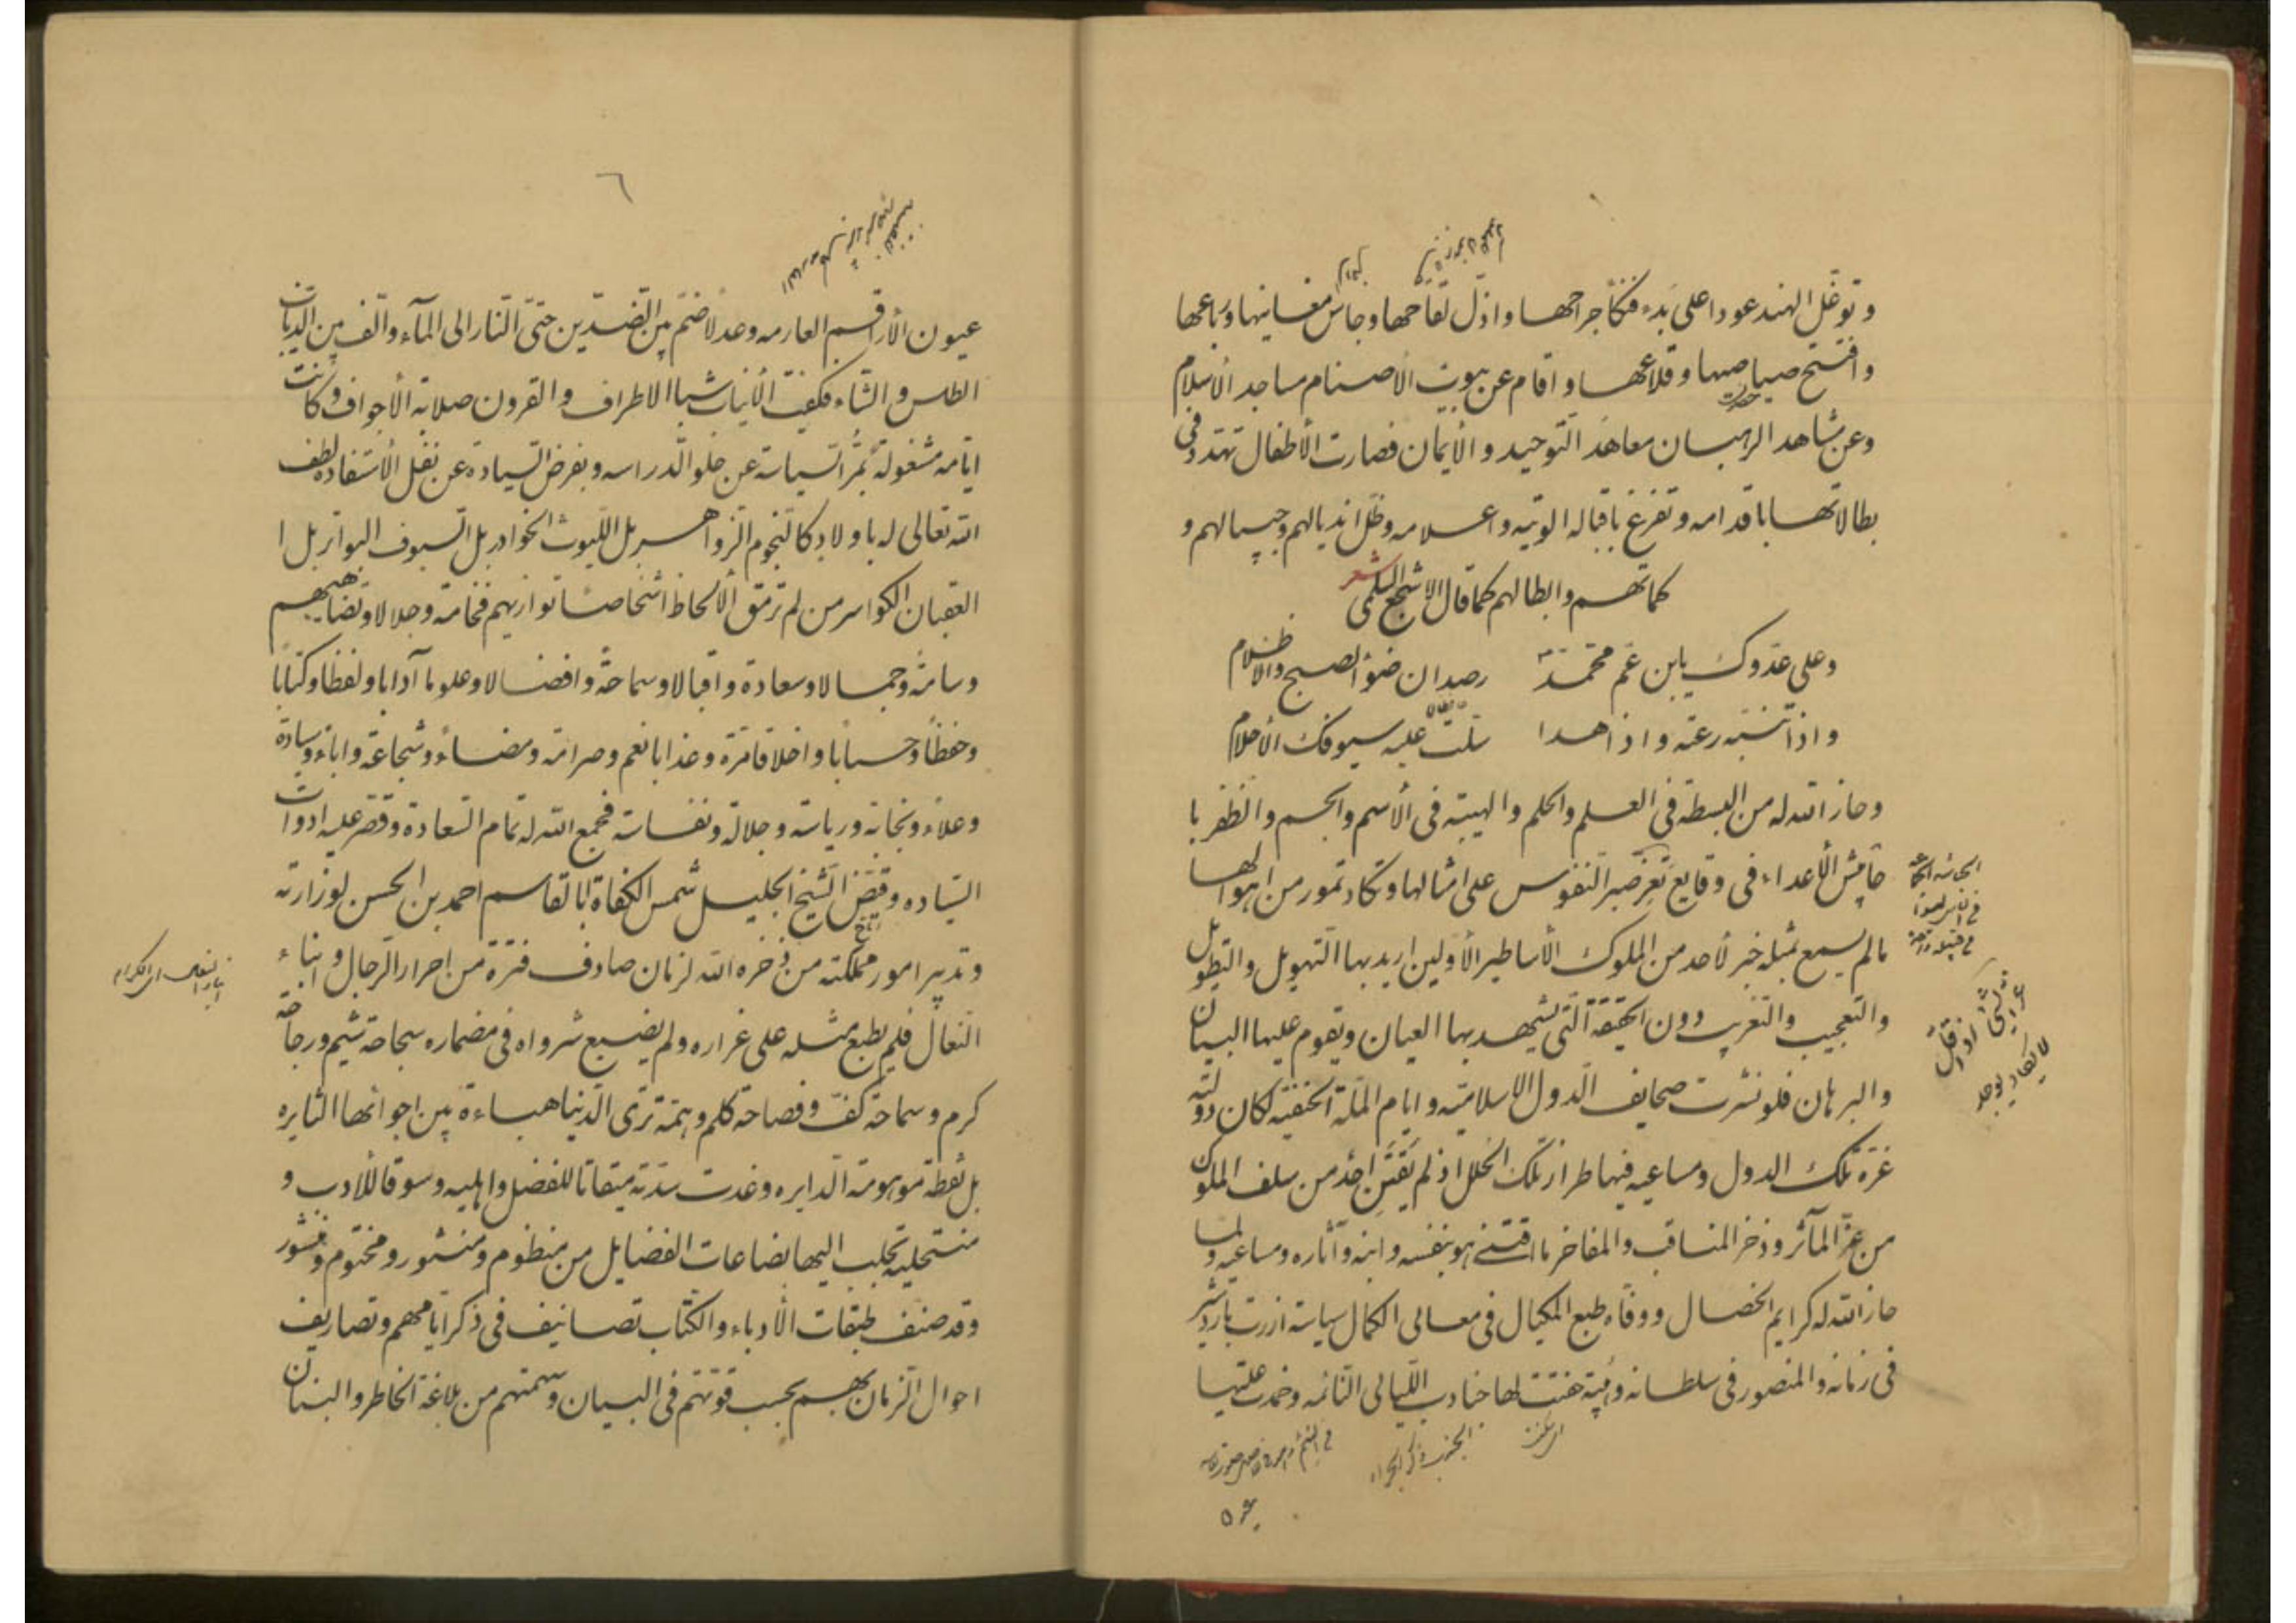 وتوغل الهند عودا على بدء فنكأ جراحها واذل لقاحها وجاس مغانيها ورباعها
وافتتح صياصيها وقلاعها واقام عن بيوت الأصنام مساجد الأسلام
وعن مشاهد الرهبان معاهد التوحيد والأيمان فصارت الأطفال تهتدد في
بطالاتها باقدامه وتفزغ باقباله الويته واعلامه وظل انديالهم وجيبالهم و
كماتهم وابطالهم كما قال الاشجع السلمى
شعر
وعلى عدوك يابن عم محمد رصدان ضوء الصبح والاظلام
واذا تنبه رعته واذا هدا سلت عليه سيوفك الأحلام
وحاز الله له من البسطة فى العلم والحلم والهيبة فى الأسم والجسم والظفر با
الأعداء فى وقايع تعز صبر النفوس على امثالها وتكاد تمور من اهوالها
مالم يسمع بمثله خبر لأحد من الملوك الأساطير الأولين اريد بها التهويل والتطويل
والتعجيب والتغريب دون الحقيقة التى يشهد بها العيان ويقوم عليها البيان
والبرهان فلو نشرت صحايف الدول الاسلامية وايام الملة الحنفية لكان دولته
غرة تلك الدول ومساعيه فيها طراز تلك الحلل اذ لم يقتن احد من سلف الملوك
من غر المآثر وذخر المناقب والمفاخر ما اقتنى هو بنفسه وابنه وآثاره ومساعيه ولما
حاز الله له كرايم الخصال ووفاه طبع المكيال فى معالى الكمال سياسة ازرت باردشير
فى زمانه والمنصور فى سلطانه وهيبة لها جنادب الليالى النائمه وخمدت عليها
٦
عيون الأراقم العارمه وعدلا ضم بين الضدين حتى النار الى المآء والف بين الذياب
الطلس والشاء فكفت الأنياب شبا الاطراف والقرون صلابة الأجواف وكانت
ايامه مشغولة بمر السياسة عن حلو الدراسه وبفرض السيادة عن نفل الأستفاده لطف
الله تعالى له باولاد كالنجوم الزواهر بل الليوث الخوادر بل السيوف البواتر بل ا
العقبان الكواسر من لم ترمق الألحاظ اشخاصا توازيهم فخامة وجلالا وتضاهيهم
وسامة وجمالا وسعادة واقبالا وسماحة وافضالا وعلوما آدابا ولفظا وكتابا
وحفظا وحسابا واخلاقا وعذابا نعم وصرامة ومضاء وشجاعة واباء وسيادة
وعلاء ونجابة ورياسة وجلالة ونفاسة فجمع الله له تمام السعادة وقصر عليه ادوات
السياده وقيض الشيخ الجليل شمس الكفاة ابا القاسم احمد بن الحسن لوزارته
وتدبير امور مملكته من ذخره الله لزمان صادف فترة من احرار الرجال وابناء
النعال فلم يطبع مثله على غراره ولم يضبع شرواه فى مضماره سجاحة شيم ورجاحة
كرم وسماحة كف وفصاحة كلم وهمة ترى الدنيا هباءة بين اجوائها الثايره
بل نقطة موهومة الدايره وغدت سدته ميقاتا للفضل واهليه وسوقا للأدب و
منتحليه تجلب اليها بضاعات الفضايل من منظوم ومنثور ومختوم ومنشور
وقد صنف طبقات الأدباء والكتاب تصانيف فى ذكر ايامهم وتصاريف
احوال الزمان بهم بحسب قوتهم فى البيان وسهمتهم من بلاغة الخاطر والبنان